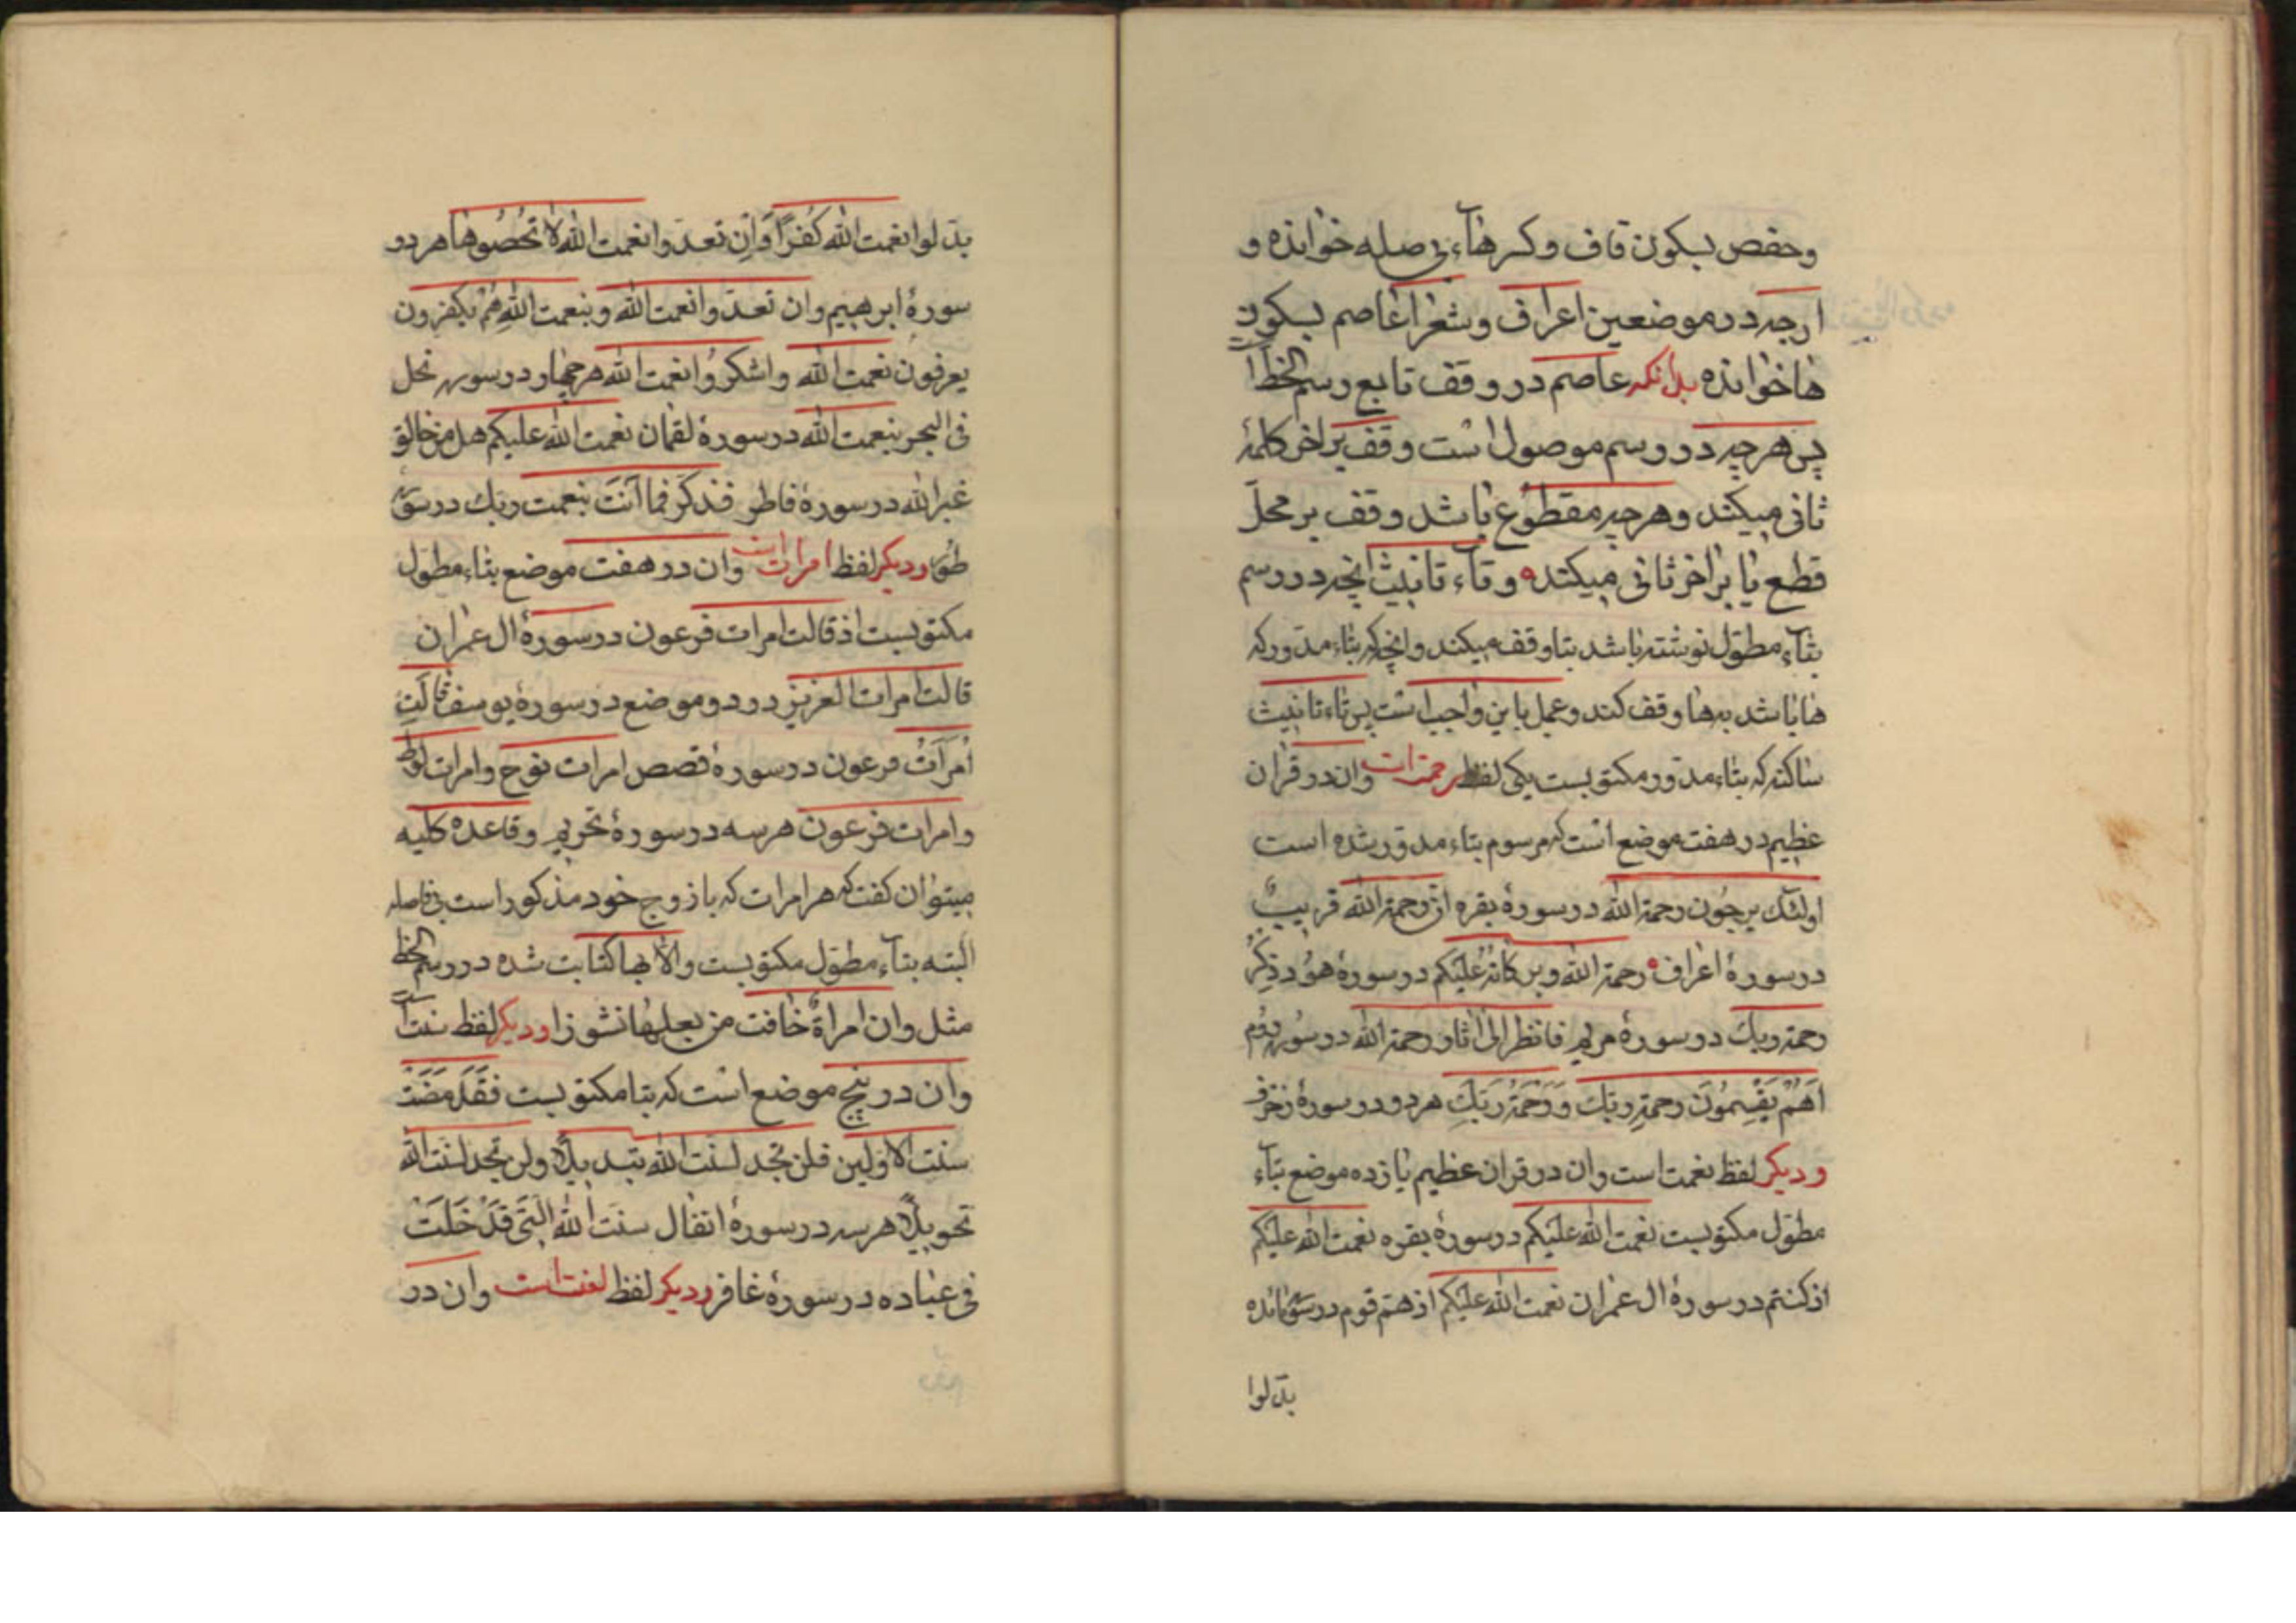 وحفص بسکون قاف وکسرهاء بی صله خوانده و
ارجه در موضعین اعراف وشعرا عاصم بسکون
ها خوانده بدانکه عاصم در وقف تابع رسم الخط
پس هرچه در رسم موصول است وقف بر اخر کلمۀ
ثانی میکند وهرچه مقطوع باشد وقف بر محلّ
قطع یا بر اخر ثانی میکند وتاء تانیث انچه در رسم
بتاء مطوّل نوشته باشد بتا وقف میکند وانچه که بتاء مدوّر که
ها باشد بها وقف کند وعمل باین واجب است پس تاء تانیث
ساکنه که بتاء مدوّر مکتوبست یکی لفظ رحمة است وان در قران
عظیم در هفت موضع است که مرسوم بتاء مدوّر شده است
اولئک یرجون رحمة الله در سورۀ بقره انّ رحمة الله قریبٌ
در سورۀ اعراف رحمة الله وبرکاته علیکم در سورۀ هود ذکر
رحمة ربک در سورۀ مریم فانظر الی اثار رحمة الله در سورۀ روم
اَهُم یَقسِمُونَ رحمةِ ربّک وَرَحمَةُ رَبّکَ هر دو در سورۀ زخرف
ودیکر لفظ نعمت است وان در قران عظیم یازده موضع بتاء
مطوّل مکتوبست نعمت الله علیکم در سورۀ بقره نعمت الله علیکم
اذ کنتم در سورۀ ال عمران نعمت الله علیکم اذ همّ قوم در سورۀ مائده
بدّلوا
بدّلوا نعمت الله کُفرًا وَاِن تعدّوا نعمت الله لا تُحصُوها هر دو
سورۀ ابرهیم وان تعدّوا نعمت الله وبنعمت اللهِ هُم یکفرون
یعرفون نعمت الله واشکرُوا نعمت الله هر چهار در سوره نحل
فی البحر بنعمت الله در سورۀ لقمان نعمت الله علیکم هل من خالق
غیر الله در سورۀ فاطر فذکّر فما اَنتَ بنعمت ربک در سورۀ
طور ودیکر لفظ امرات است وان در هفت موضع بتاء مطوّل
مکتوبست اذ قالت امرات فرعون در سورۀ ال عمران
قالت امرات العزیز در دو موضع در سورۀ یوسف قالَتِ
اَمرَاَتُ فرعون در سورۀ قصص امرات نوح وامرات لوط
وامرات فرعون هر سه در سورۀ تحریم وقاعده کلیه
میتوان کفت که هر امرات که با زوج خود مذکور است بی فاصله
البته بتاء مطوّل مکتوبست والّا بها کتابت شده در رسم الخط
مثل وان امراةٌ خافت من بعلها نشوزا ودیکر لفظ سنت
وان در پنج موضع است که بتا مکتوبست فقَد مَضَت
سنت الاوّلین فلن تجد لسنّت الله تبدیلًا ولن تجد لسنّت الله
تحویلًا هر سه در سورۀ انفال سنت الله الّتی قَد خَلَتْ
فی عباده در سورۀ غافر ودیکر لفظ لعنت است وان در